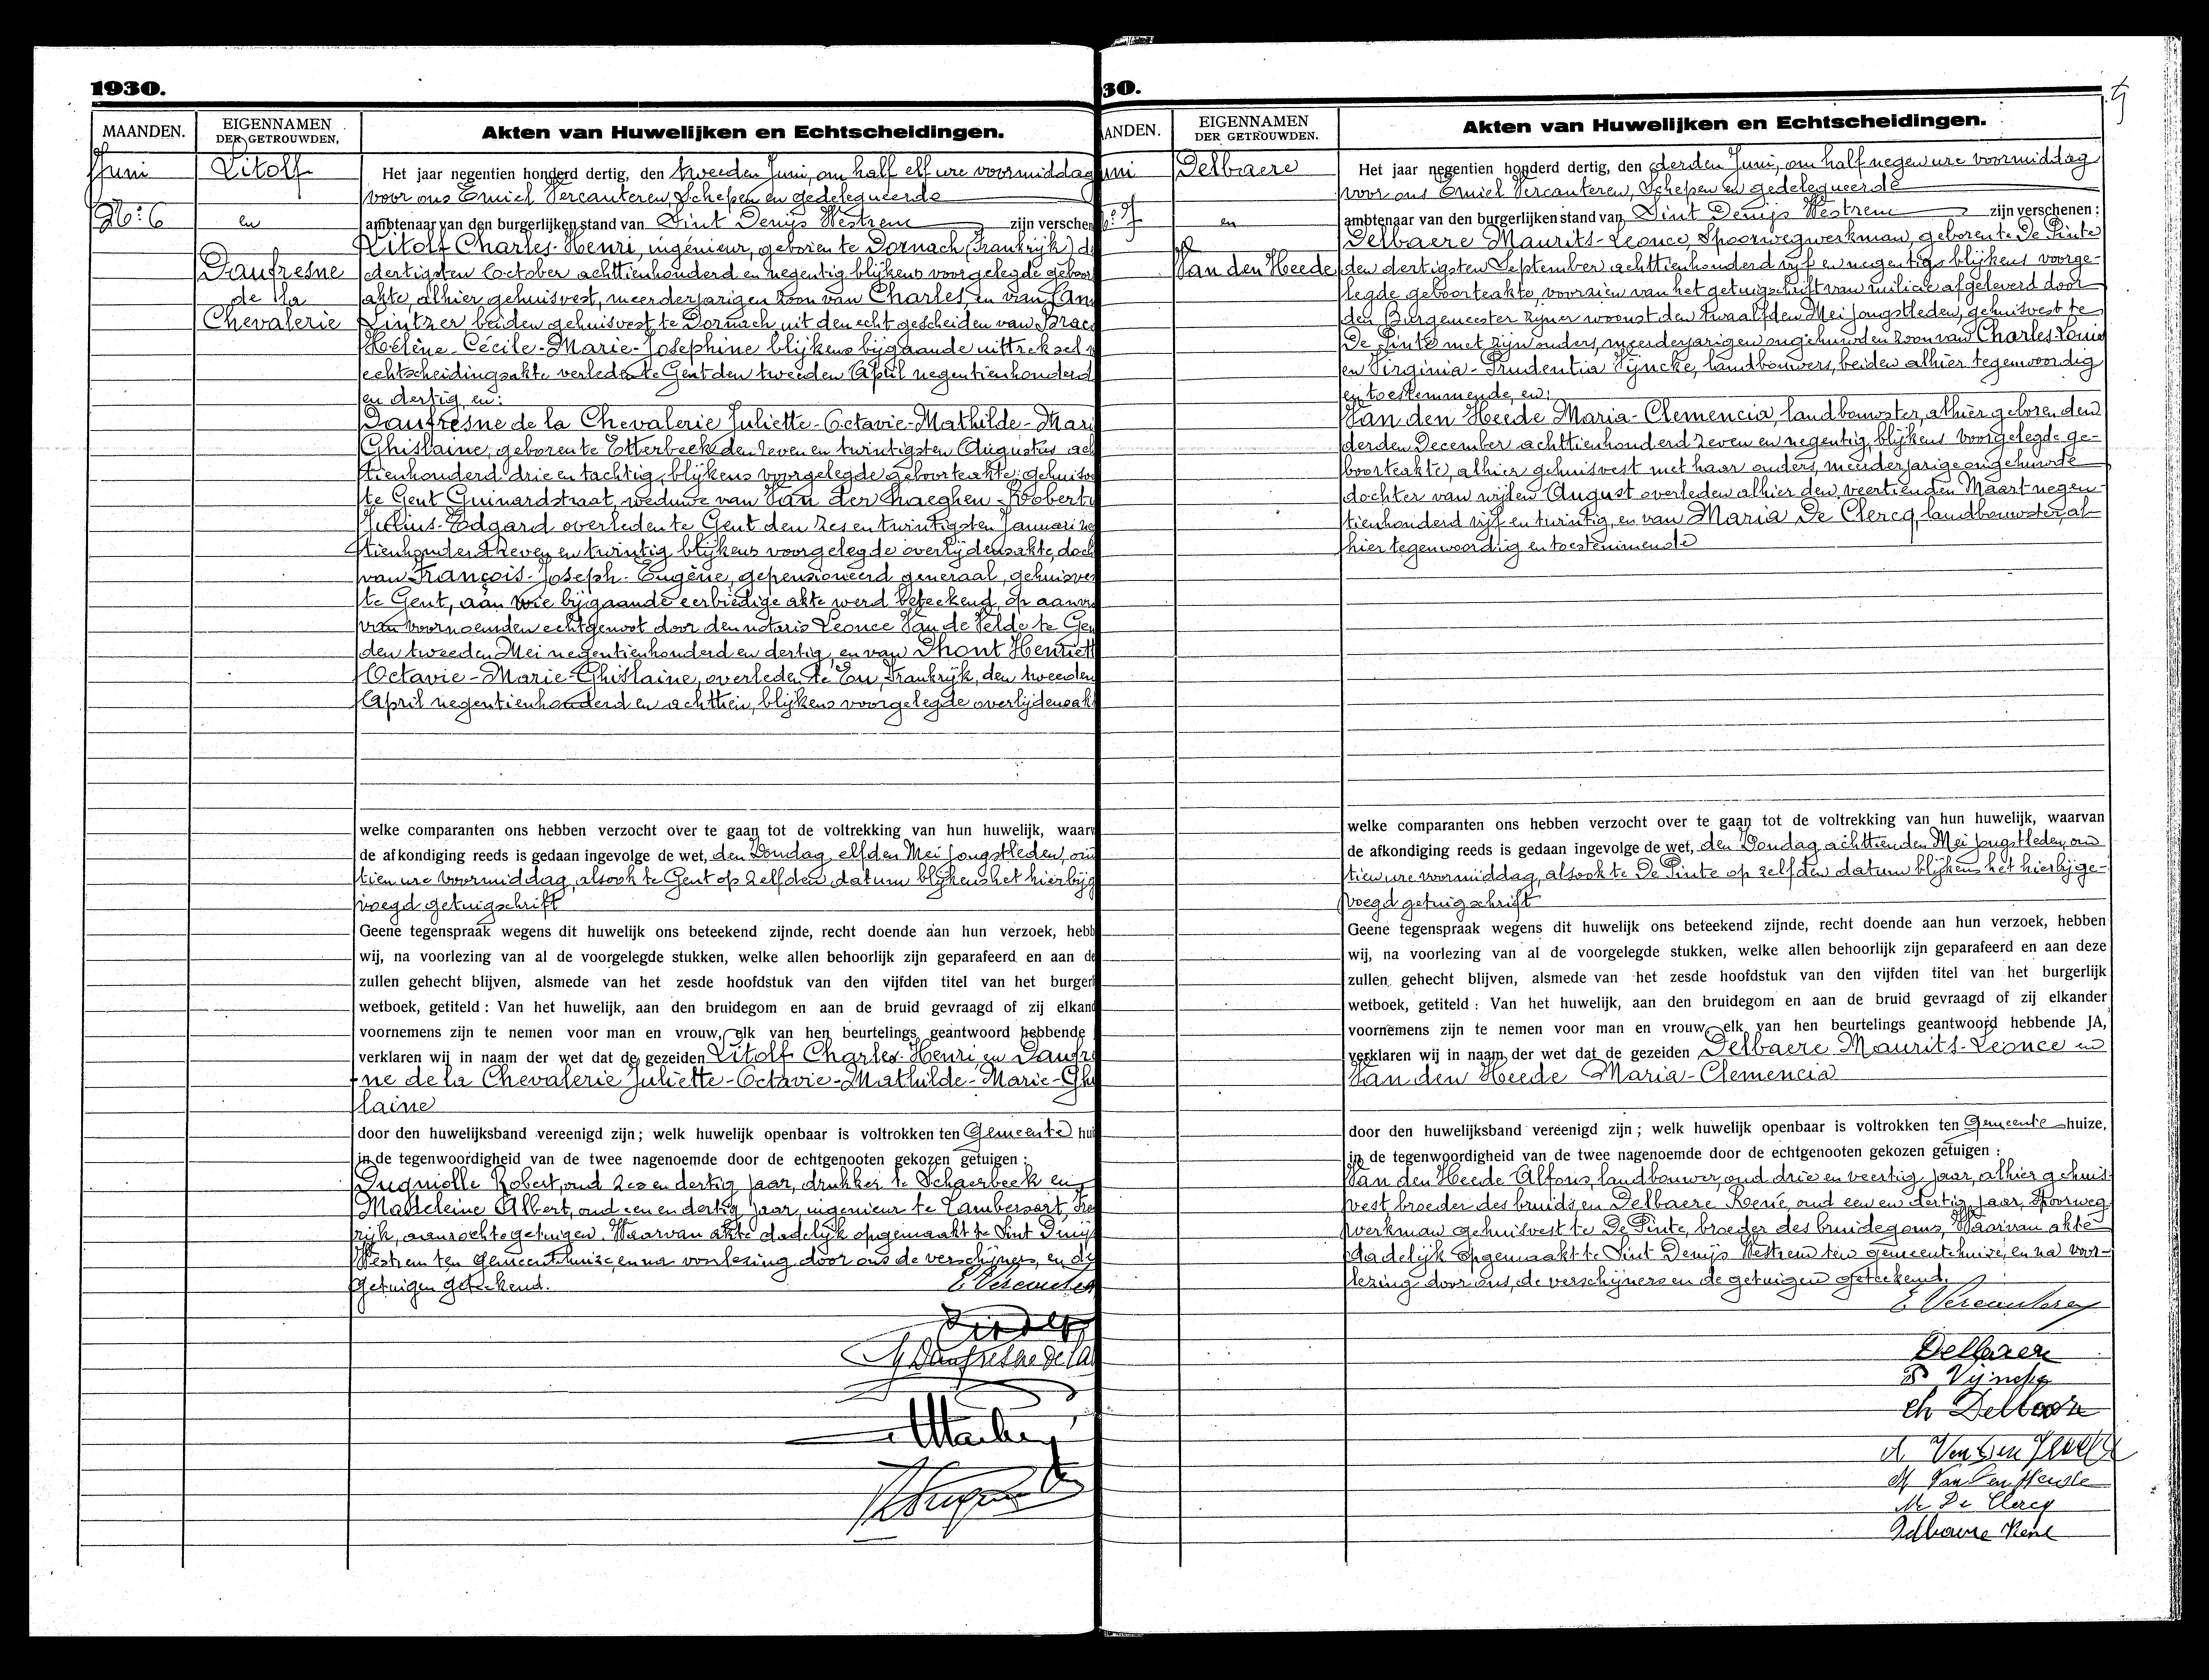 1930.
MAANDEN.
EIGENNAMEN
DER GETROUWDEN.
Akten van Huwelijken en Echtscheidingen.
Juni
No: 6
Litolf
en
Daufresne
de la
Chevalerie
Het jaar negentien honderd dertig, den tweeden Juni, om half elf ure voormiddag
voor ons Emiel Vercauteren, Schepen en gedelegueerde
ambtenaar van den burgerlijken stand van Sint Denijs Westrem zijn verschen
Litolf Charles-Henri, ingénieur, geboren te Dornach (Frankrijk) de
dertigsten October achttienhonderd en negentig blijkens voorgelegde geboor
akte, alhier gehuisvest, meerderjarigen zoon van Charles, en van
Lintzer beiden gehuisvest te Dornach uit den echt gescheiden van
Hélène-Cécile-Marie-Josephine blijkens bijgaande uittreksel
echtscheidingsakte verleden te Gent den tweeden April negentienhonderd
en dertig, en:
Daufresne de la Chevalerie Juliette-Octavie-Mathilde-Mari
Ghislaine, geboren te Etterbeek den zeven en twintigsten Augustus ach
tienhonderd drie en tachtig, blijkens voorgelegde geboorteakte, gehuisv
te Gent Guinardstraat, weduwe van Van der Haeghen Robert
Julius-Edgard overleden te Gent den zes en twintigsten Januari ne
tienhonderd zeven en twintig blijkens voorgelegde overlijdensakte, doch
van François-Joseph-Eugène, gepensioneerd generaal, gehuisves
te Gent, aan wie bijgaande eerbiedige akte werd beteekend, op aanvr
van voornoemden echtgenoot door den notaris Leonce Van de Velde te Gen
den tweeden Mei negentienhonderd en dertig, en van Dhont Henriett
Octavie-Marie-Ghislaine, overleden te Eu, Frankrijk, den tweeden
April negentienhonderd en achttien, blijkens voorgelegde overlijdensak
welke comparanten ons hebben verzocht over te gaan tot de voltrekking van hun huwelijk, waarv
de afkondiging reeds is gedaan ingevolge de wet, den Zondag elfden Mei jongstleden, om
tien ure voormiddag, alsook te Gent op zelfden datum blijkens het hierbijg
voegd getuigschrift
Geene tegenspraak wegens dit huwelijk ons beteekend zijnde, recht doende aan hun verzoek, hebb
wij, na voorlezing van al de voorgelegde stukken, welke allen behoorlijk zijn geparafeerd en aan de
zullen gehecht blijven, alsmede van het zesde hoofdstuk van den vijfden titel van het burgerl
wetboek, getiteld : Van het huwelijk, aan den bruidegom en aan de bruid gevraagd of zij elkand
voornemens zijn te nemen voor man en vrouw, elk van hen beurtelings geantwoord hebbende
verklaren wij in naam der wet dat de gezeiden Litolf Charles-Henri en Daufre
ne de la Chevalerie Juliette-Octavie-Mathilde-Marie-Ghi
laine
door den huwelijksband vereenigd zijn; welk huwelijk openbaar is voltrokken ten Gemeente hui
in de tegenwoordigheid van de twee nagenoemde door de echtgenooten gekozen getuigen :
Duquiolle Robert, oud zes en dertig jaar, drukker te Schaerbeek en
Madeleine Albert, oud een en dertig jaar, ingenieur te Lambersart, Fra
rijk, aanzochte getuigen. Waarvan akte dadelijk opgemaakt te Sint Denijs
Westrem ten Gemeentehuize, en na voorlezing door ons de verschijners, en de
Getuigen geteekend.
E Vercauteren
J Daufresne de la
30.
ANDEN.
EIGENNAMEN
DER GETROUWDEN.
Akten van Huwelijken en Echtscheidingen.
uni
o: 7
Delbaere
en
Van den Heede
Het jaar negentien honderd dertig, den derden Juni, om half negen ure voormiddag
voor ons Emiel Vercauteren, Schepen en gedelegueerde
ambtenaar van den burgerlijken stand van Sint Denijs Westrem zijn verschenen :
Delbaere Maurits-Leonce, Spoorwegwerkman, geboren te De Pinte
den dertigsten September achttienhonderd vijf en negentig blijkens voorge-
legde geboorteakte, voorzien van het getuigschrift van milicie afgeleverd door
den Burgemeester zijner woonst den twaalfden Mei jongstleden, gehuisvest te
De Pinte met zijn ouders, meerderjarigen ongehuwden zoon van Charles-Louis
en Virginia-Prudentia Vijncke, landbouwers, beiden alhier tegenwoordig
en toestemmende, en:
Van den Heede Maria-Clemencia, landbouwster, alhier geboren den
derden December achttienhonderd zeven en negentig, blijkens voorgelegde ge-
boorteakte, alhier gehuisvest met haar ouders, meerderjarige ongehuwde
dochter van wijlen August overleden alhier den veertienden Maart negen-
tienhonderd vijf en twintig, en van Maria De Clercq, landbouwster, al-
hier tegenwoordig en toestemmende
welke comparanten ons hebben verzocht over te gaan tot de voltrekking van hun huwelijk, waarvan
de afkondiging reeds is gedaan ingevolge de wet, den Zondag achttienden Mei jongstleden, om
tien ure voormiddag, alsook te De Pinte op zelfden datum blijkens het hierbijge-
voegd getuigschrift
Geene tegenspraak wegens dit huwelijk ons beteekend zijnde, recht doende aan hun verzoek, hebben
wij, na voorlezing van al de voorgelegde stukken, welke allen behoorlijk zijn geparafeerd en aan deze
zullen gehecht blijven, alsmede van het zesde hoofdstuk van den vijfden titel van het burgerlijk
wetboek, getiteld : Van het huwelijk, aan den bruidegom en aan de bruid gevraagd of zij elkander
voornemens zijn te nemen voor man en vrouw, elk van hen beurtelings geantwoord hebbende JA,
verklaren wij in naam der wet dat de gezeiden Delbaere Maurits-Leonce en
Van den Heede Maria-Clemencia
door den huwelijksband vereenigd zijn; welk huwelijk openbaar is voltrokken ten Gemeente huize,
in de tegenwoordigheid van de twee nagenoemde door de echtgenooten gekozen getuigen :
Van den Heede Alfons, landbouwer, oud drie en veertig jaar, alhier gehuis-
vest, broeder des bruids, en Delbaere René, oud een en dertig jaar, spoorweg-
werkman gehuisvest te De Pinte, broeder des bruidegoms, Waarvan akte
dadelijk opgemaakt te Sint Denijs Westrem ten gemeentehuize, en na voor-
lezing door ons, de verschijners en de getuigen geteekend.
E Vercauteren
Delbaere
P Vijncke
Ch Delbaere
A Van den Heede
M Van den Heede
M De Clercq
Delbaere René